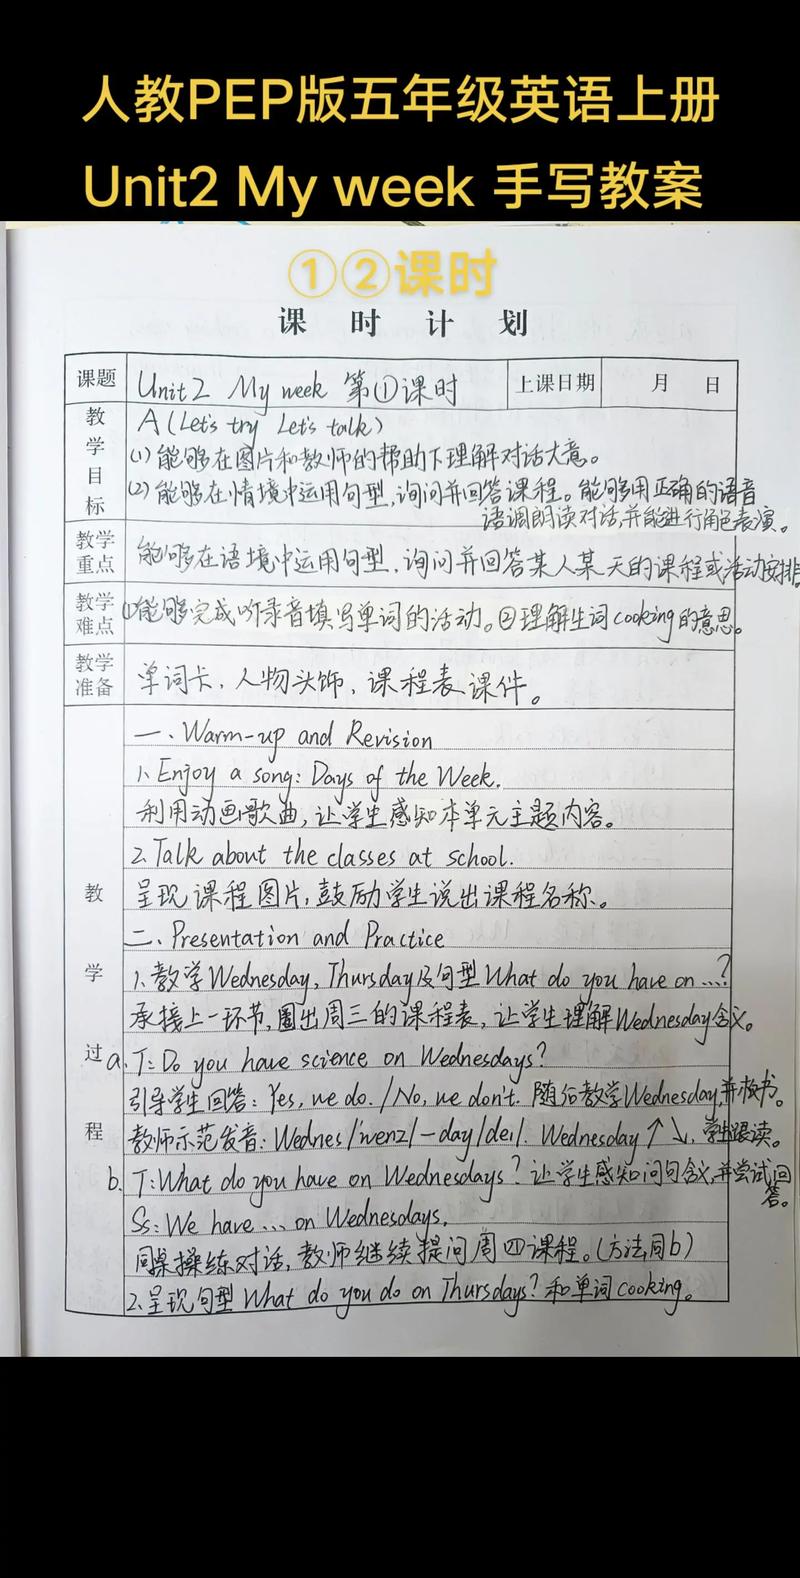 人教PEP版五年级英语上册
Unit2 My week 手写教案
①②课时
课 时 计 划
课题 Unit2 My week 第①课时 上课日期 月 日
教学目标 A(Let's try Let's talk)
(1)能够在图片和教师的帮助下理解对话大意。
(2)能够在情境中运用句型,询问并回答课程。能够用正确的语音
语调朗读对话,并能进行角色表演。
教学重点 能够在语境中运用句型,询问并回答某人某天的课程或活动安排
教学难点 ①能够完成听录音填写单词的活动。②理解生词cooking的意思。
教学准备 单词卡,人物头饰,课程表课件。
教学过程
一、Warm-up and Revision
1. Enjoy a song: Days of the Week.
利用动画歌曲,让学生感知本单元主题内容。
2. Talk about the classes at school.
呈现课程图片,鼓励学生说出课程名称。
二、Presentation and Practice
1. 教学Wednesday, Thursday及句型What do you have on ...?
承接上一环节,圈出周三的课程表,让学生理解Wednesday含义。
a. T: Do you have science on Wednesdays?
引导学生回答: Yes, we do. / No, we don't. 随后教学Wednesday,并板书。
教师示范发音: Wednes/wenz/-day/dei/. Wednesday ↑ ↘, 学生跟读。
b. T: What do you have on Wednesdays? 让学生感知问句含义,并尝试回
答。
Ss: We have ... on Wednesdays.
同桌操练对话,教师继续提问周四课程。(方法同b)
2. 呈现句型What do you do on Thursdays? 和单词cooking。